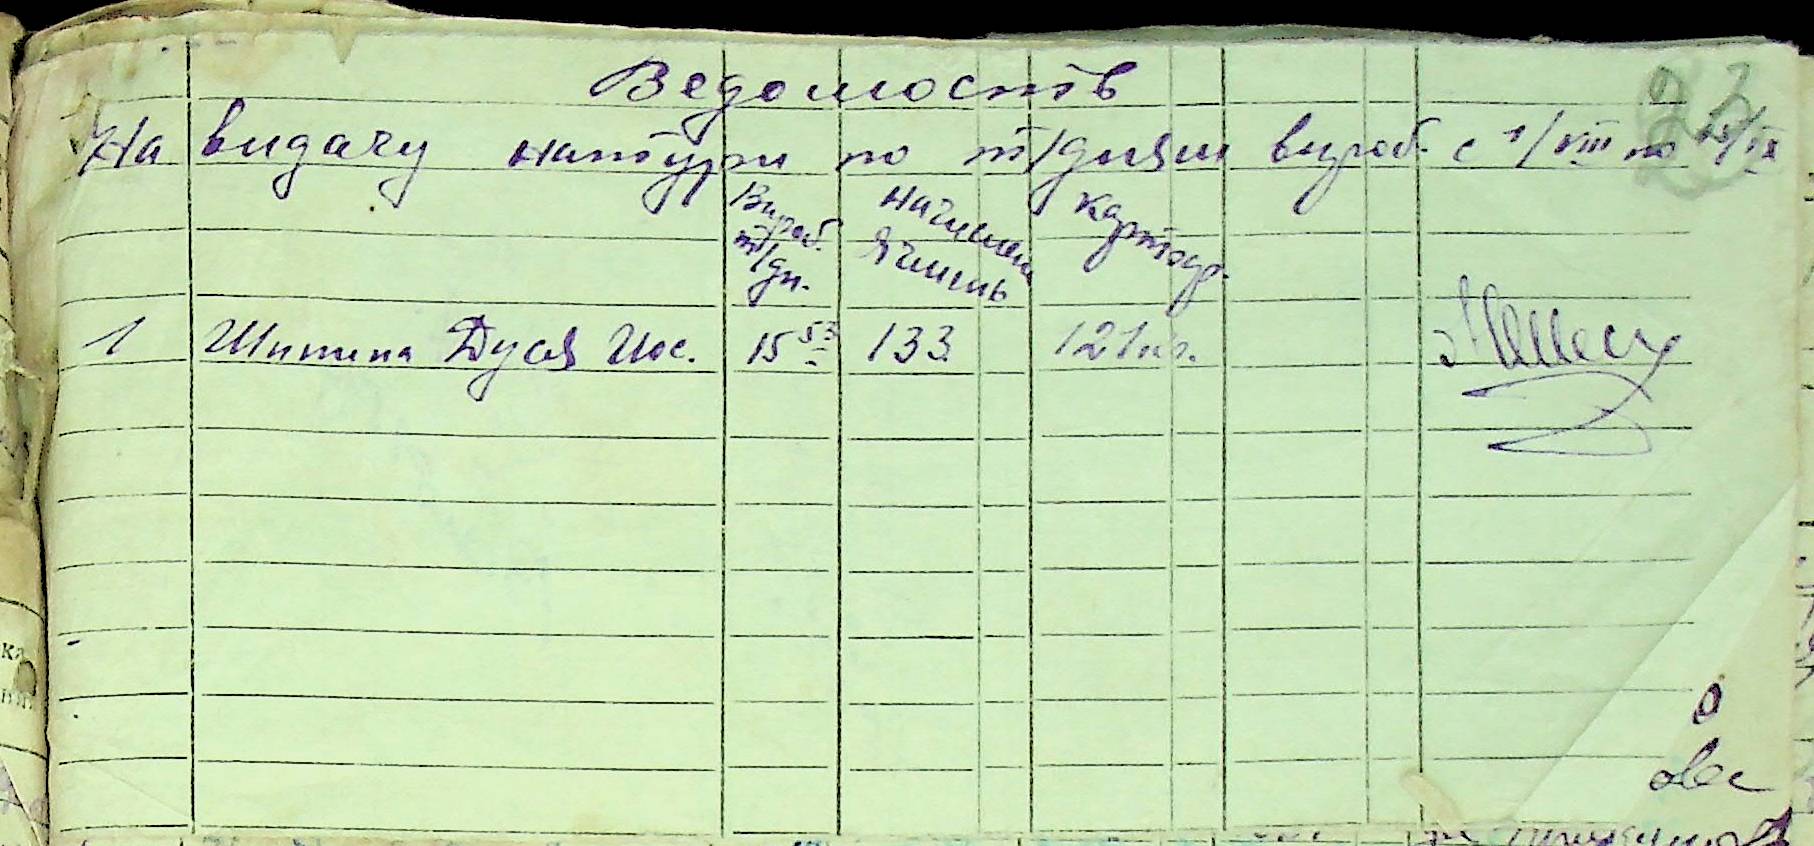 23
Ведомоств
На видачу натури по т/дням вироб. с 1/VIII по /IX
Вироб. т/дн.
начислен ячмень
картоф.
1 Шитина Дуся Иос. 15 53 133 121 кг.
0
овес